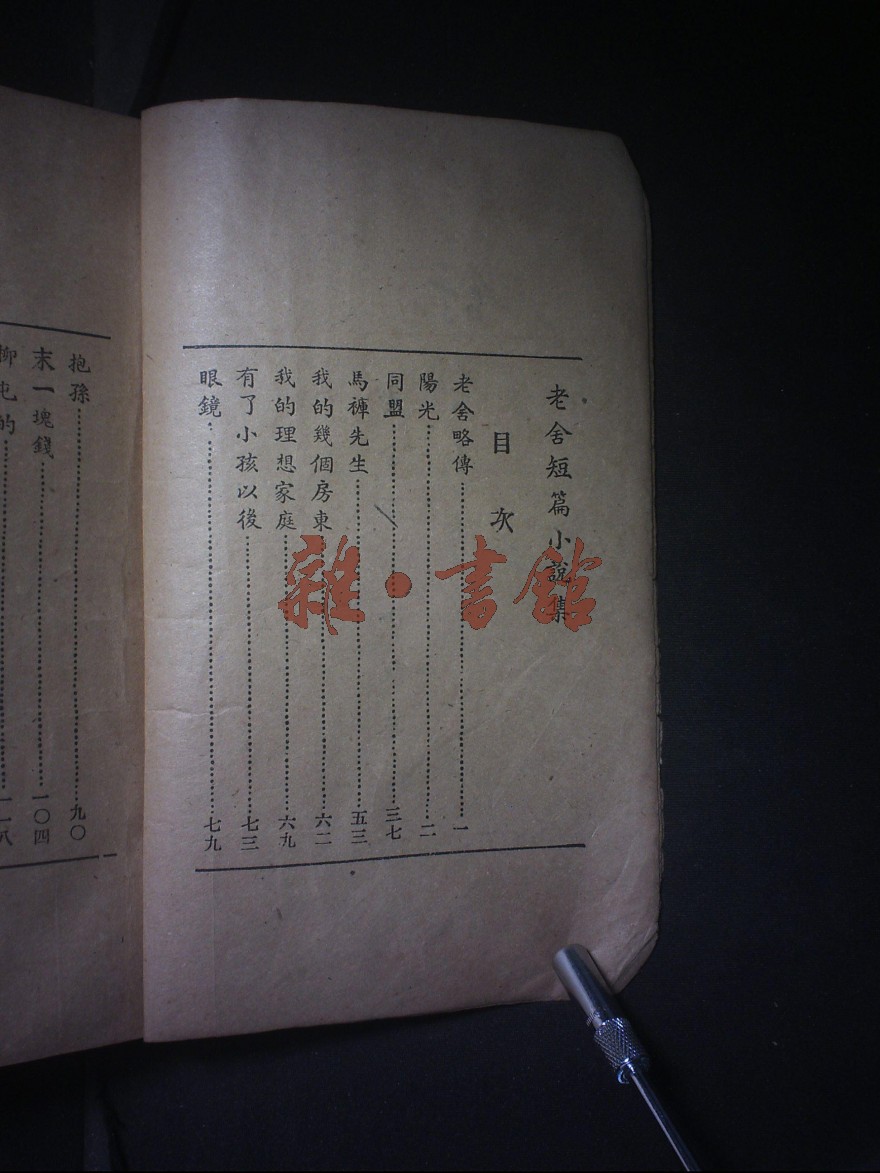 老舍短篇小說集
目次
老舍略傳……一
陽光……二
同盟……三七
馬褲先生……五三
我的幾個房東……六二
我的理想家庭……六九
有了小孩以後……七三
眼鏡……七九
抱孫……九〇
末一塊錢……一〇四
柳屯的……一一八
雜·書館